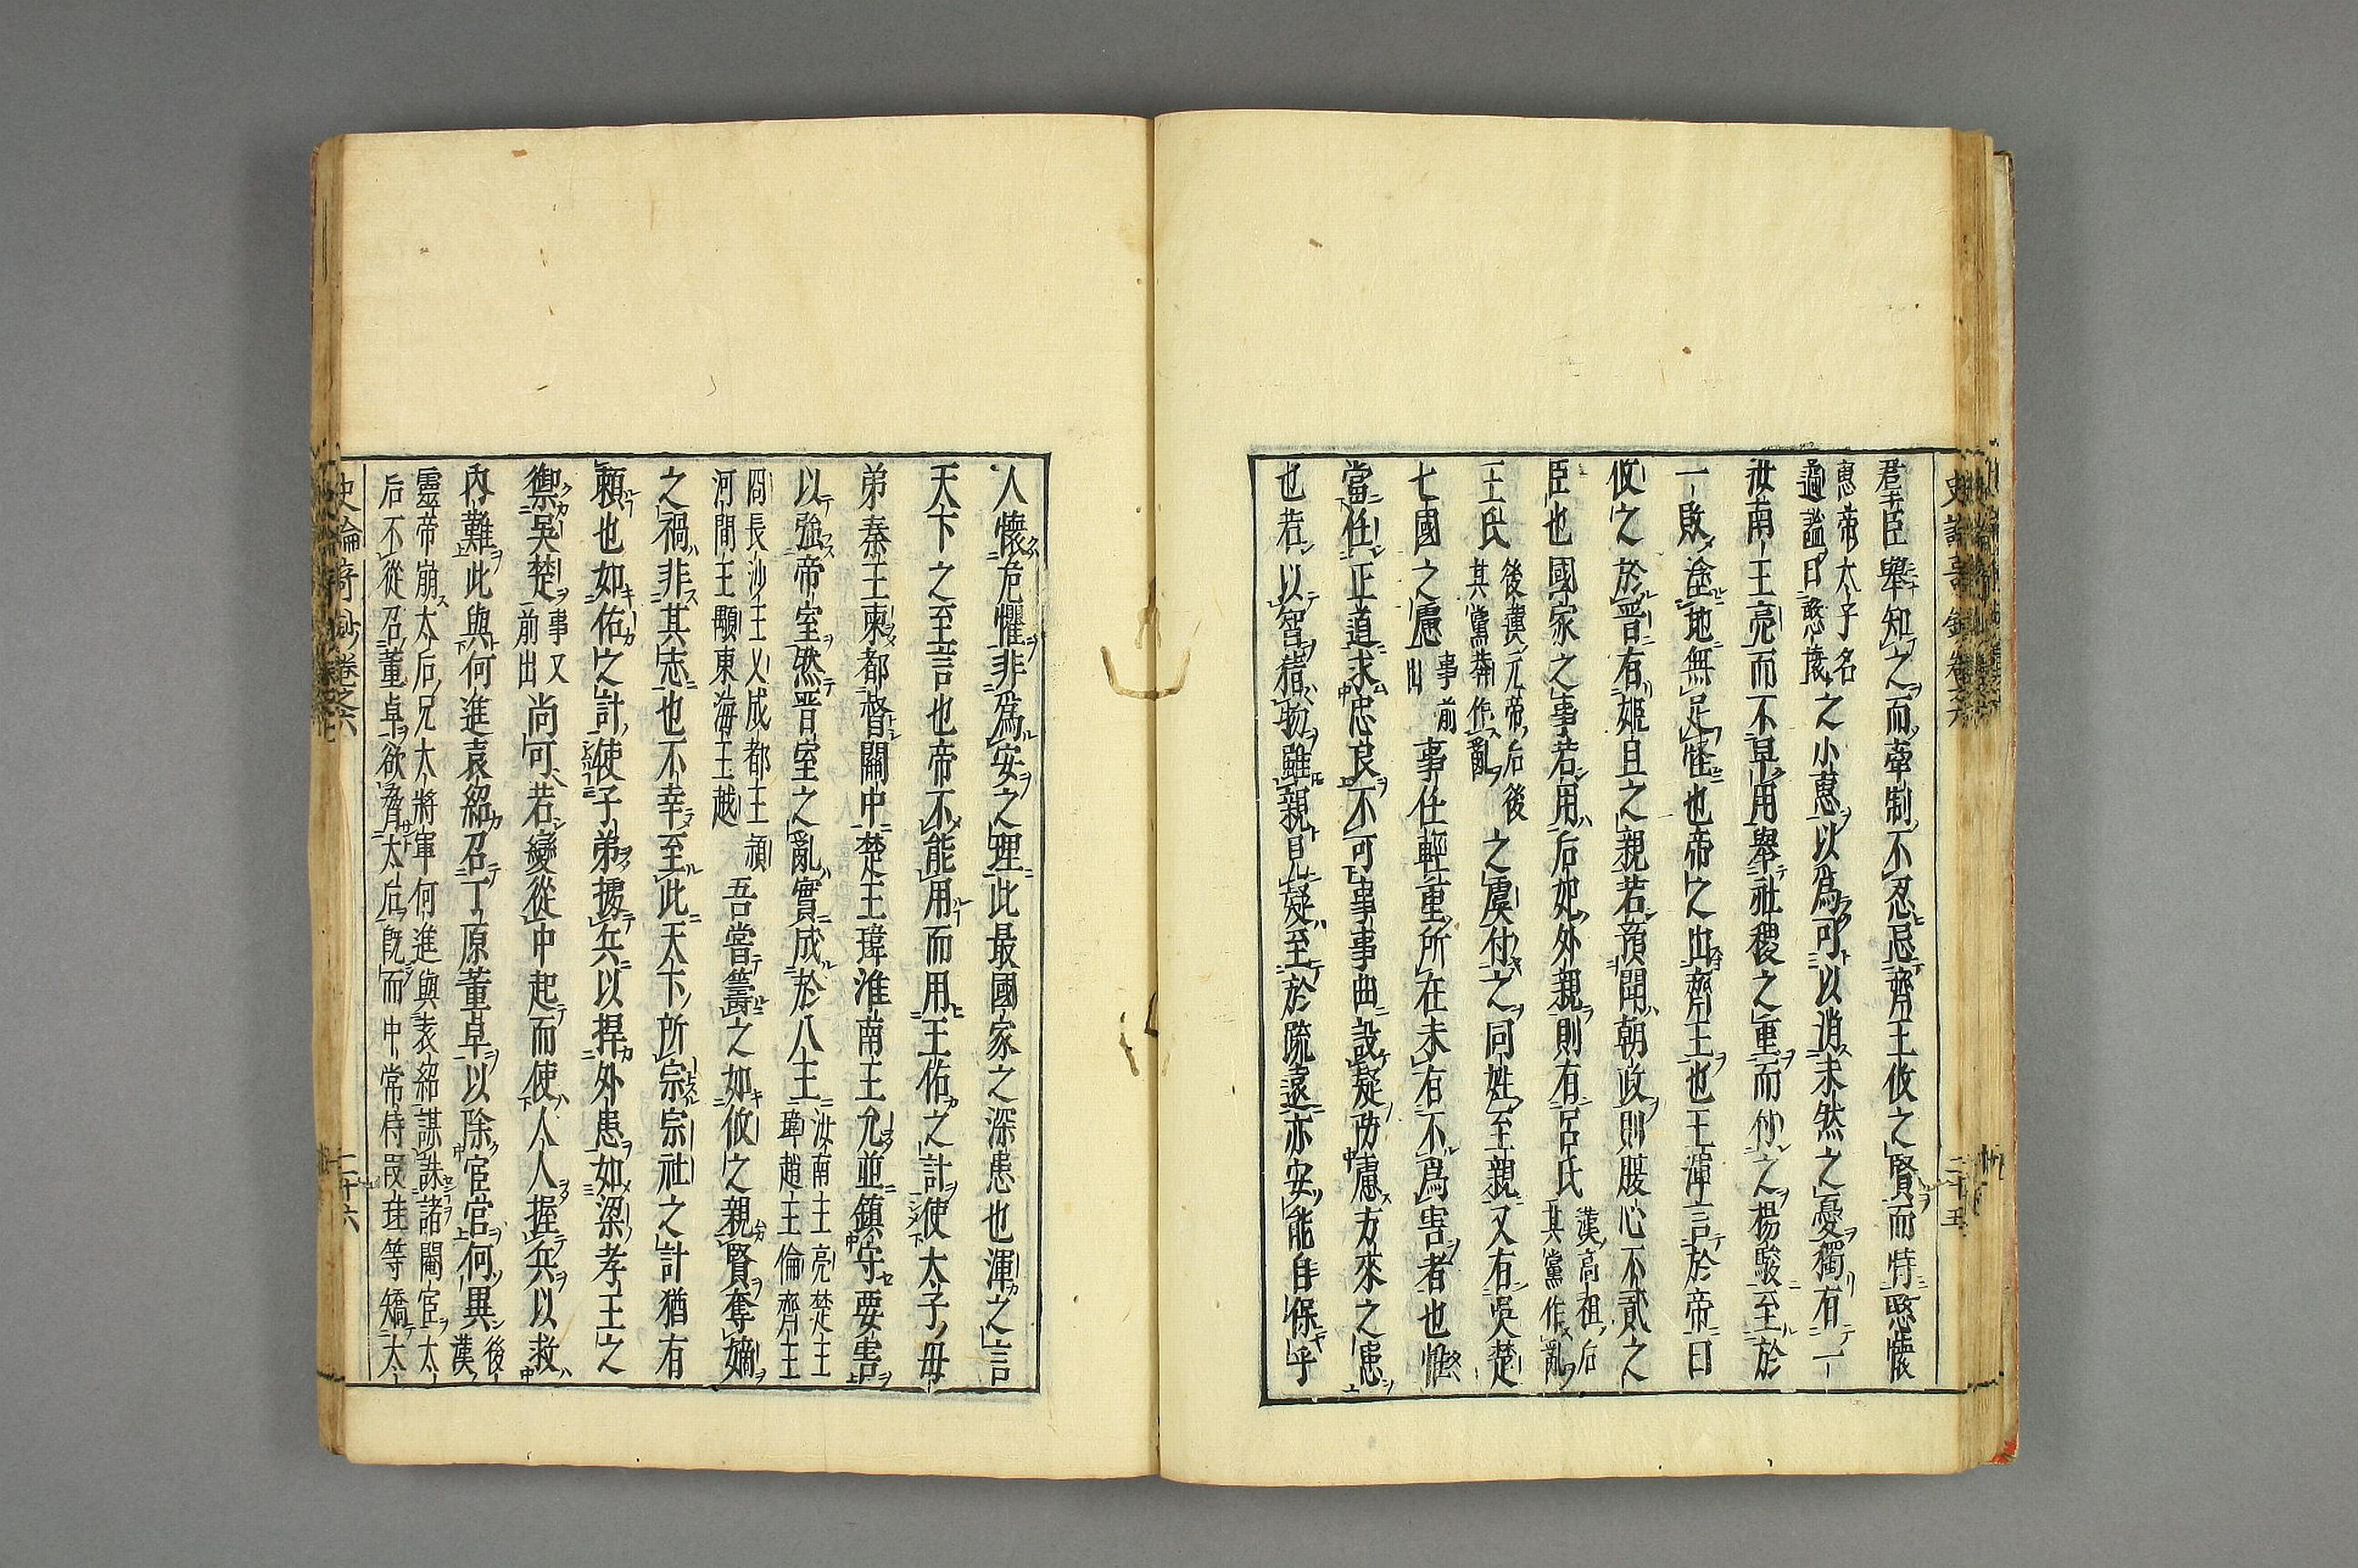 君臣舉知之而牽制不忍忌齊王攸之賢而恃愍懷
惠帝太子名
遹謚曰愍懷
之小惠以為可以消未然之憂獨有一
汝南王亮而不早用舉社稷之重而付之楊駿至於
一敗塗地無足怪也帝之出齊王也王渾言於帝曰
攸之於晋有姬旦之親若預聞朝政則腹心不貳之
臣也國家之事若用后妃外親則有呂氏
漢高祖后
其黨作亂
王氏
後漢元帝后後
其黨莽作亂
之虞付之同姓至親又有吳楚
七國之慮
事前
出
事任輕重所在未有不為害者也惟
當任正道求忠良不可事事曲設疑防慮方來之患
也若以智猜物雖親見疑至於疏遠亦安能自保乎
史論奇鈔卷之六
二十五
人懷危懼非為安之理此最國家之深患也渾之言
天下之至言也帝不能用而用王佑之計使太子母
弟秦王柬都督關中楚王瑋淮南王允並鎮守要害
以強帝室然晋室之亂實成於八王
汝南王亮楚王
瑋趙王倫齊王
冏長沙王乂成都王穎
河間王顒東海王越
吾嘗籌之如攸之親賢奪嫡
之禍非其志也不幸至此天下所宗宗社之計猶有
賴也如佑之計使子弟擾兵以捍外患如梁孝王之
禦吳楚
事又
前出
尚可若變從中起而使人人握兵以救
內難此與何進袁紹召丁原董卓以除宦官何異
後
漢
靈帝崩太后兄大將軍何進與袁紹謀誅諸閹宦太
后不從召董卓欲脅太后既而中常侍段珪等矯太
史論奇鈔卷之六
二十六